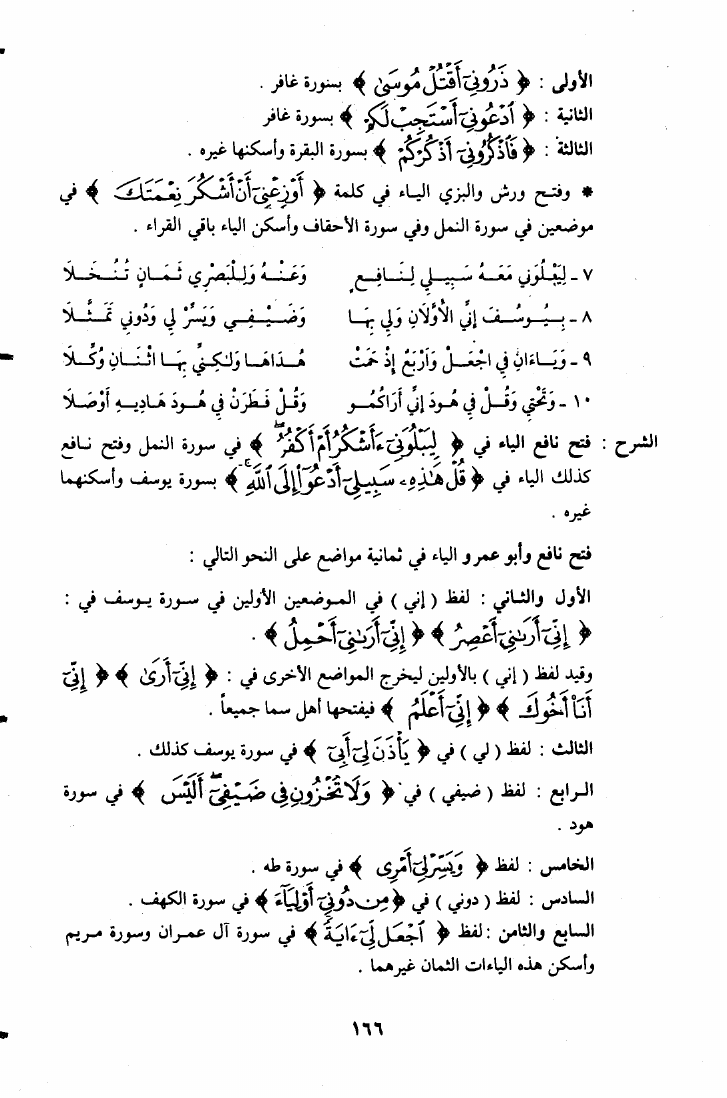 الأولى : ﴿ ذَرُونِىٓ أَقْتُلْ مُوسَىٰ ﴾ بسورة غافر .
الثانية : ﴿ ٱدْعُونِىٓ أَسْتَجِبْ لَكُمْ ﴾ بسورة غافر
الثالثة : ﴿ فَٱذْكُرُونِىٓ أَذْكُرْكُمْ ﴾ بسورة البقرة وأسكنها غيره .
* وفتح ورش والبزي الياء في كلمة ﴿ أَوْزِعْنِىٓ أَنْ أَشْكُرَ نِعْمَتَكَ ﴾ في
موضعين في سورة النمل وفي سورة الأحقاف وأسكن الياء باقي القراء .
٧ - لِيَبْلُوَنِي مَعَهُ سَبِيلِي لِنَافِعٍ وَعَنْهُ وَلِلْبَصْرِي ثَمَانٍ تُنُخِّلَا
٨ - بِيُوسُفَ إِنِّي الْأَوَّلَانِ وَلِي بِهَا وَضَيْفِي وَيَسِّرْ لِي وَدُونِي تَمَثَّلَا
٩ - وَيَاءَانِ فِي اجْعَلْ وَأَرْبَعُ إِذْ حَمَتْ هُدَاهَا وَلَكِنِّي بِهَا اثْنَانِ وُكِّلَا
١٠ - وَتَحْتِي وَقُلْ فِي هُودَ إِنِّي أَرَاكُمُو وَقُلْ فَطَرَنْ فِي هُودَ هَادِيهِ أَوْصَلَا
الشرح : فتح نافع الياء في ﴿ لِيَبْلُوَنِىٓ ءَأَشْكُرُ أَمْ أَكْفُرُ ﴾ في سورة النمل وفتح نافع
كذلك الياء في ﴿ قُلْ هَٰذِهِۦ سَبِيلِىٓ أَدْعُوٓاْ إِلَى ٱللَّهِ ﴾ بسورة يوسف وأسكنهما
غيره .
فتح نافع وأبو عمرو الياء في ثمانية مواضع على النحو التالي :
الأول والثاني : لفظ ( إني ) في الموضعين الأولين في سورة يوسف في :
﴿ إِنِّىٓ أَرَىٰنِىٓ أَعْصِرُ ﴾ ﴿ إِنِّىٓ أَرَىٰنِىٓ أَحْمِلُ ﴾ .
وقيد لفظ ( إني ) بالأولين ليخرج المواضع الأخرى في : ﴿ إِنِّىٓ أَرَىٰ ﴾ ﴿ إِنِّىٓ
أَنَا۠ أَخُوكَ ﴾ ﴿ إِنِّىٓ أَعْلَمُ ﴾ فيفتحها أهل سما جميعاً .
الثالث : لفظ ( لي ) في ﴿ يَأْذَنَ لِىٓ أَبِىٓ ﴾ في سورة يوسف كذلك .
الرابع : لفظ ( ضيفي ) في ﴿ وَلَا تُخْزُونِ فِى ضَيْفِىٓ أَلَيْسَ ﴾ في سورة
هود .
الخامس : لفظ ﴿ وَيَسِّرْ لِىٓ أَمْرِى ﴾ في سورة طه .
السادس : لفظ ( دوني ) في ﴿ مِن دُونِىٓ أَوْلِيَآءَ ﴾ في سورة الكهف .
السابع والثامن : لفظ ﴿ ٱجْعَل لِّىٓ ءَايَةً ﴾ في سورة آل عمران وسورة مريم
وأسكن هذه الياءات الثمان غيرهما .
١٦٦